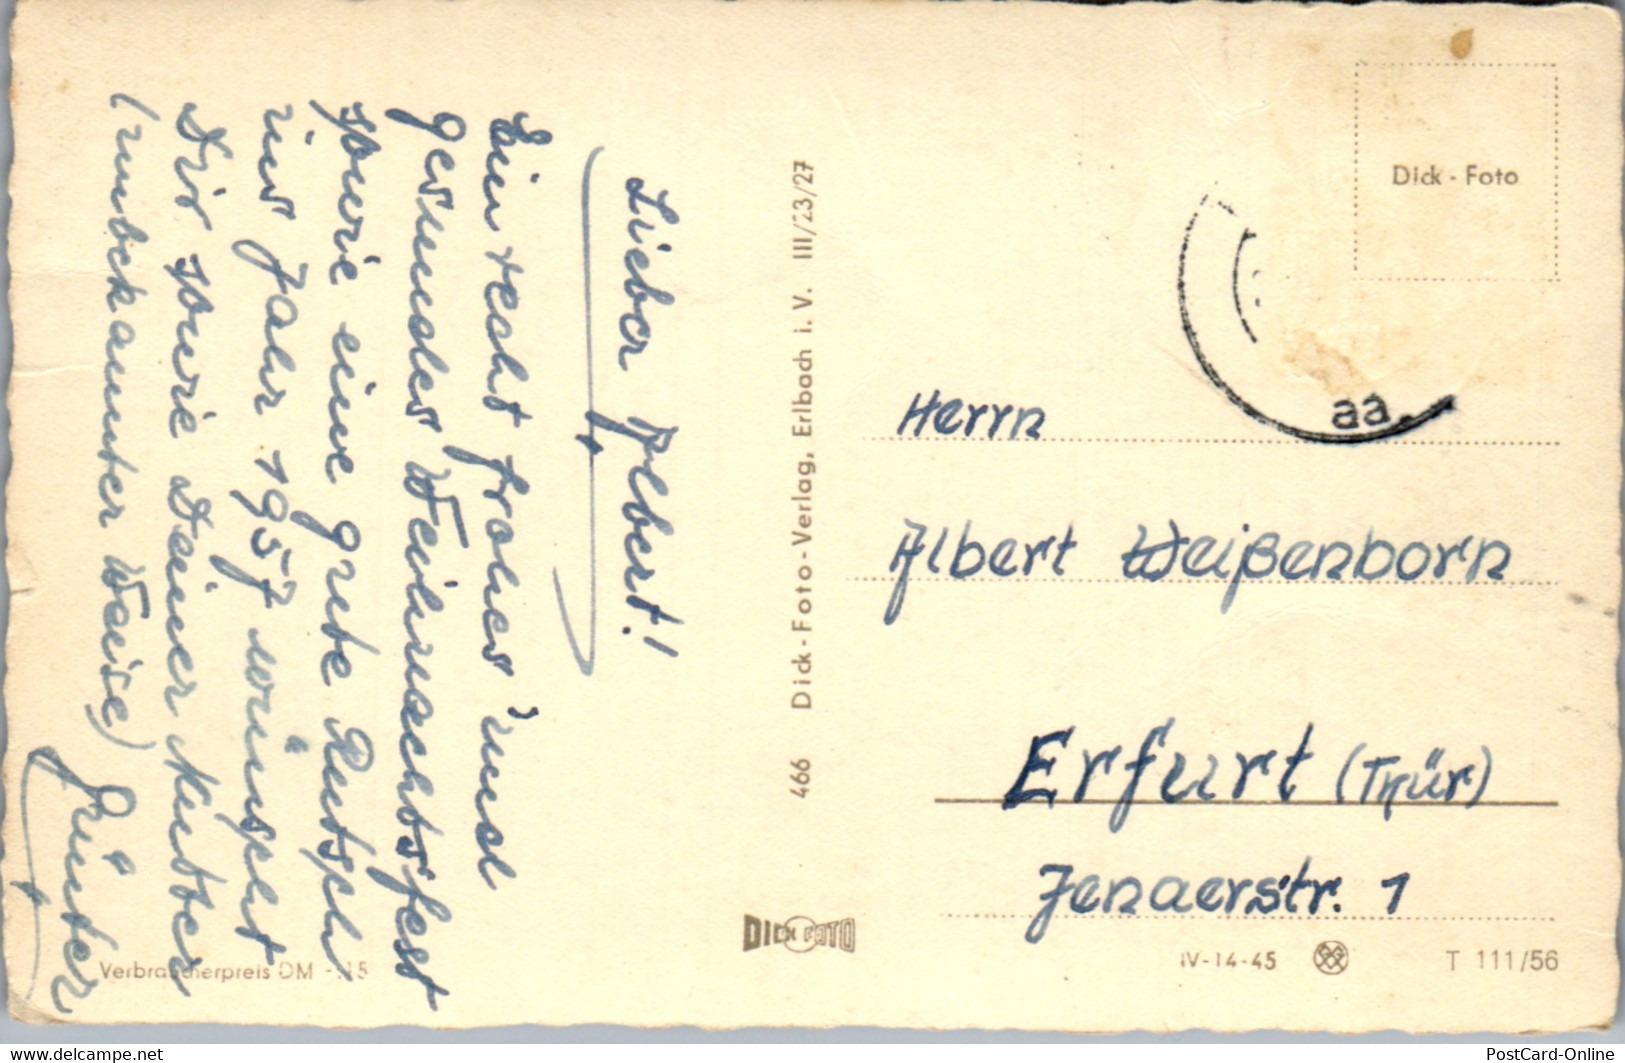 Lieber Albert!
Ein recht frohes und
gesundes Weihnachtsfest
sowie eine gute Rutsch
ins Jahr 1957 wünscht
Dir sowie Deiner Mutter
(unbekannter Weise)
Günter
Verbraucherpreis DM -.15
466 Dick-Foto-Verlag, Erlbach i. V. III/23/27
DICK FOTO
Dick - Foto
aa
Herrn
Albert Weißenborn
Erfurt (Thür)
Jenaerstr. 1
IV-14-45
T 111/56
www.delcampe.net
PostCard-Online